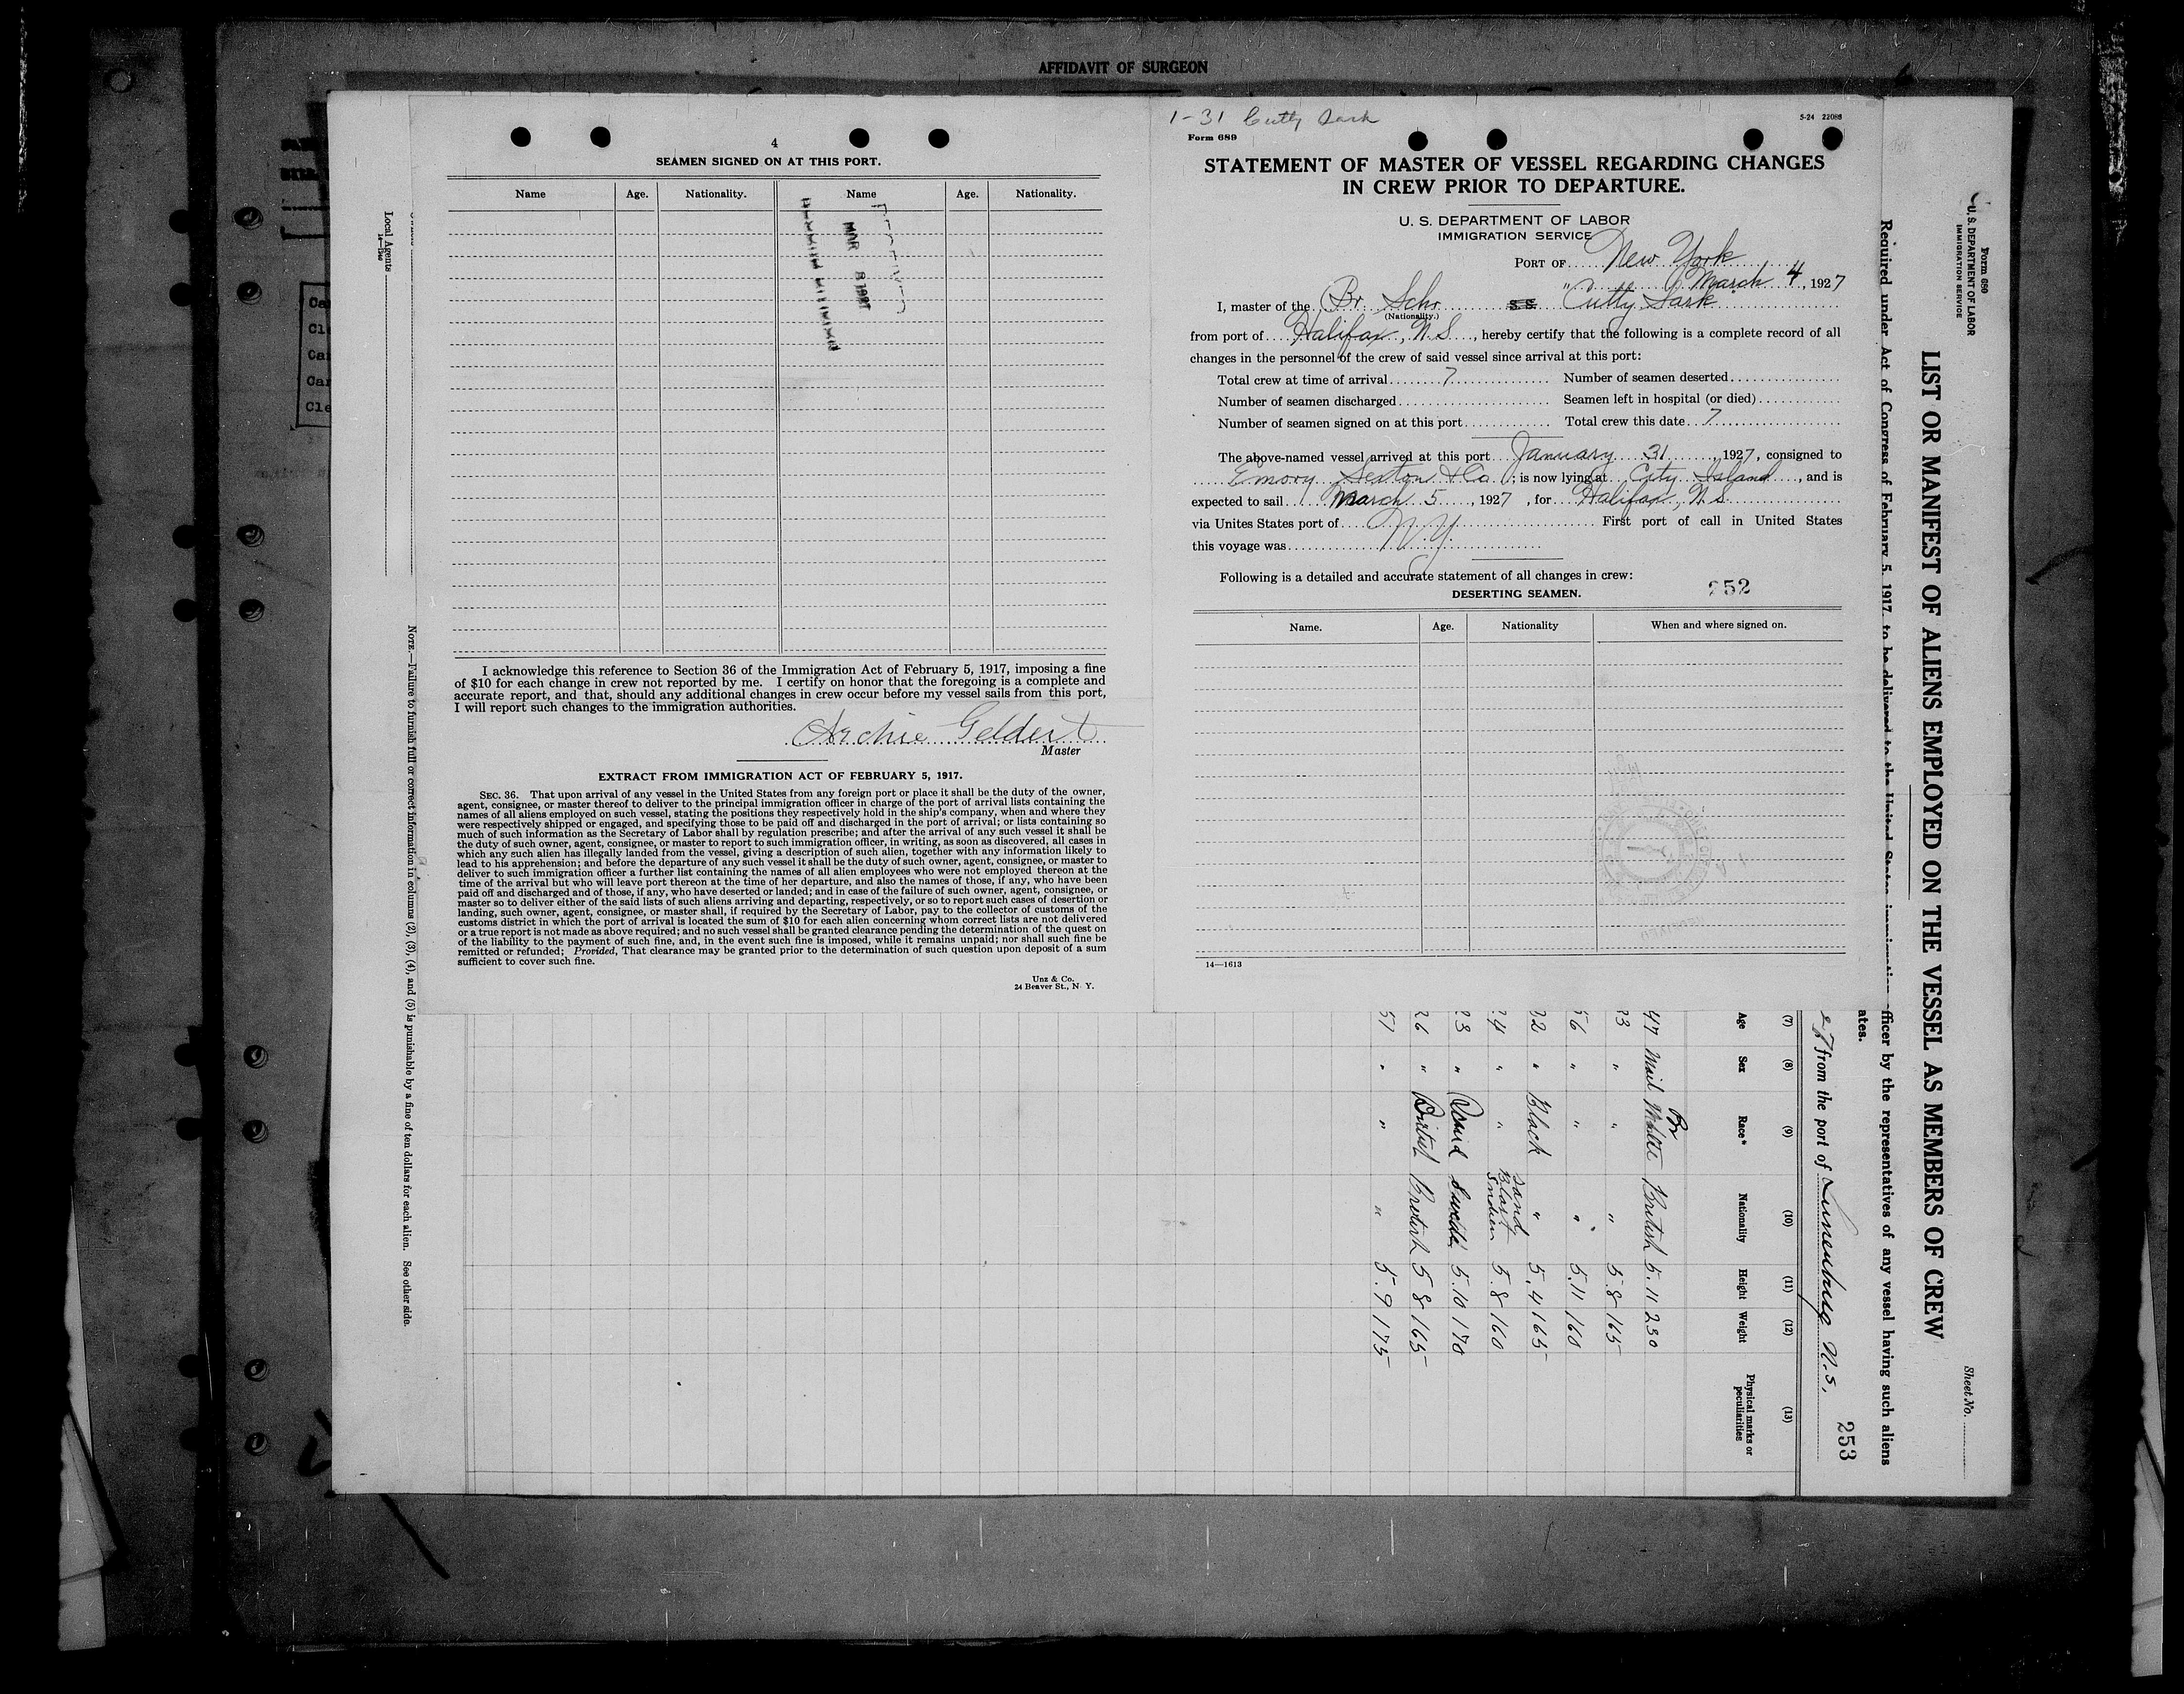 AFFIDAVIT OF SURGEON
4
SEAMEN SIGNED ON AT THIS PORT.
Name Age. Nationality. Name Age. Nationality.
MAR 8 1927
I acknowledge this reference to Section 36 of the Immigration Act of February 5, 1917, imposing a fine
of $10 for each change in crew not reported by me. I certify on honor that the foregoing is a complete and
accurate report, and that, should any additional changes in crew occur before my vessel sails from this port,
I will report such changes to the immigration authorities.
Archie Geldert
Master
EXTRACT FROM IMMIGRATION ACT OF FEBRUARY 5, 1917.
SEC. 36. That upon arrival of any vessel in the United States from any foreign port or place it shall be the duty of the owner,
agent, consignee, or master thereof to deliver to the principal immigration officer in charge of the port of arrival lists containing the
names of all aliens employed on such vessel, stating the positions they respectively hold in the ship's company, when and where they
were respectively shipped or engaged, and specifying those to be paid off and discharged in the port of arrival; or lists containing so
much of such information as the Secretary of Labor shall by regulation prescribe; and after the arrival of any such vessel it shall be
the duty of such owner, agent, consignee, or master to report to such immigration officer, in writing, as soon as discovered, all cases in
which any such alien has illegally landed from the vessel, giving a description of such alien, together with any information likely to
lead to his apprehension; and before the departure of any such vessel it shall be the duty of such owner, agent, consignee, or master to
deliver to such immigration officer a further list containing the names of all alien employees who were not employed thereon at the
time of the arrival but who will leave port thereon at the time of her departure, and also the names of those, if any, who have been
paid off and discharged and of those, if any, who have deserted or landed; and in case of the failure of such owner, agent, consignee, or
master so to deliver either of the said lists of such aliens arriving and departing, respectively, or so to report such cases of desertion or
landing, such owner, agent, consignee, or master shall, if required by the Secretary of Labor, pay to the collector of customs of the
customs district in which the port of arrival is located the sum of $10 for each alien concerning whom correct lists are not delivered
or a true report is not made as above required; and no such vessel shall be granted clearance pending the determination of the quest on
of the liability to the payment of such fine, and, in the event such fine is imposed, while it remains unpaid; nor shall such fine be
remitted or refunded; Provided, That clearance may be granted prior to the determination of such question upon deposit of a sum
sufficient to cover such fine.
Unz & Co.
24 Beaver St., N. Y.
1-31 Cutty Sark
5-24 22086
Form 689
STATEMENT OF MASTER OF VESSEL REGARDING CHANGES
IN CREW PRIOR TO DEPARTURE.
U. S. DEPARTMENT OF LABOR
IMMIGRATION SERVICE
PORT OF New York
March 4, 1927
I, master of the Br. Schr. S.S. "Cutty Sark
(Nationality.)
from port of Halifax, N.S., hereby certify that the following is a complete record of all
changes in the personnel of the crew of said vessel since arrival at this port:
Total crew at time of arrival 7 Number of seamen deserted
Number of seamen discharged Seamen left in hospital (or died)
Number of seamen signed on at this port Total crew this date 7
The above-named vessel arrived at this port January 31, 1927, consigned to
Emory Sexton & Co; is now lying at City Island, and is
expected to sail March 5, 1927, for Halifax, N.S.
via Unites States port of N.Y. First port of call in United States
this voyage was
Following is a detailed and accurate statement of all changes in crew:
252
DESERTING SEAMEN.
Name. Age. Nationality When and where signed on.
14—1613
Form 689
U. S. DEPARTMENT OF LABOR
IMMIGRATION SERVICE
Sheet No.
LIST OR MANIFEST OF ALIENS EMPLOYED ON THE VESSEL AS MEMBERS OF CREW
Required under Act of Congress of February 5, 1917, to be delivered to the United States immigration officer by the representatives of any vessel having such aliens
ates.
from the port of Lunenburg N.S.
253
(7) (8) (9) (10) (11) (12) (13)
Age Sex Race* Nationality Height Weight Physical marks or peculiarities
47 Mail White British 5.11 230
33 " " " 5.8 165
56 " " " 5.11 160
32 " Black " 5.4 165
24 " " 5.8 160
23 " Swede 5.10 170
26 " British British 5 8 165
51 " " " 5.9 175
Local Agents
NOTE.—Failure to furnish full or correct information in columns (2), (3), (4), and (5) is punishable by a fine of ten dollars for each alien. See other side.